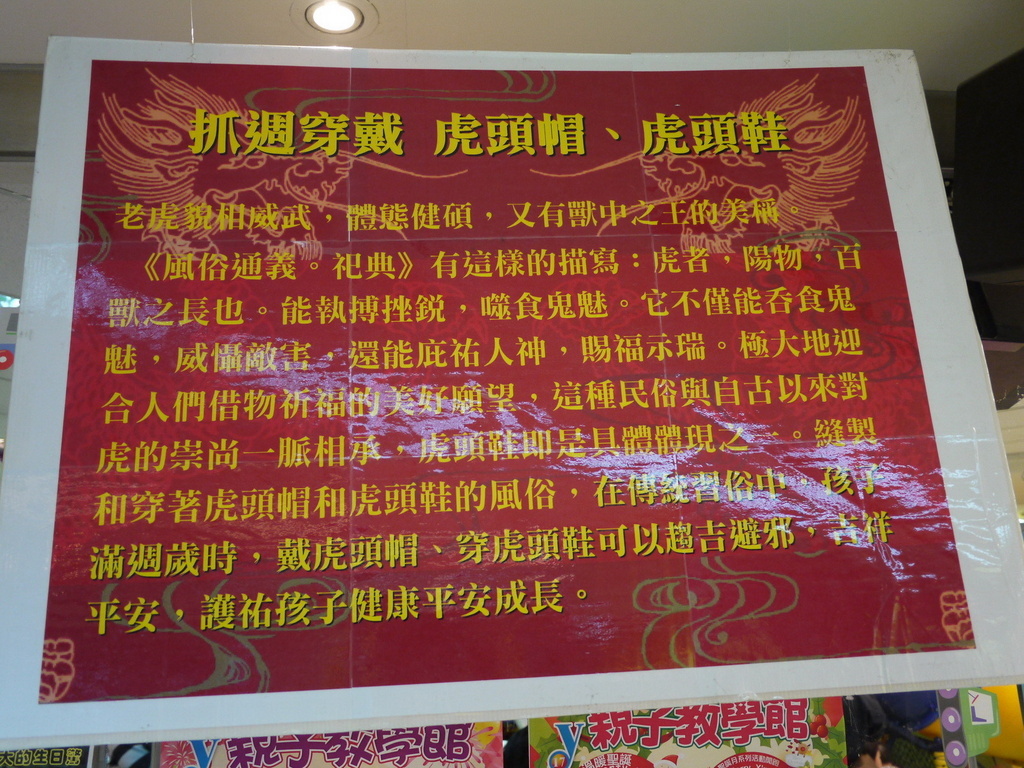 抓週穿戴 虎頭帽、虎頭鞋
老虎貌相威武，體態健碩，又有獸中之王的美稱。
《風俗通義。祀典》有這樣的描寫：虎者，陽物，百
獸之長也。能執搏挫銳，噬食鬼魅。它不僅能吞食鬼
魅，威懾敵害，還能庇祐人神，賜福示瑞。極大地迎
合人們借物祈福的美好願望，這種民俗與自古以來對
虎的崇尚一脈相承，虎頭鞋即是具體體現之一。縫製
和穿著虎頭帽和虎頭鞋的風俗，在傳統習俗中，孩子
滿週歲時，戴虎頭帽、穿虎頭鞋可以趨吉避邪，吉祥
平安，護祐孩子健康平安成長。
大的生日
y 親子教學館
y 親子教學館
溫暖聖誕